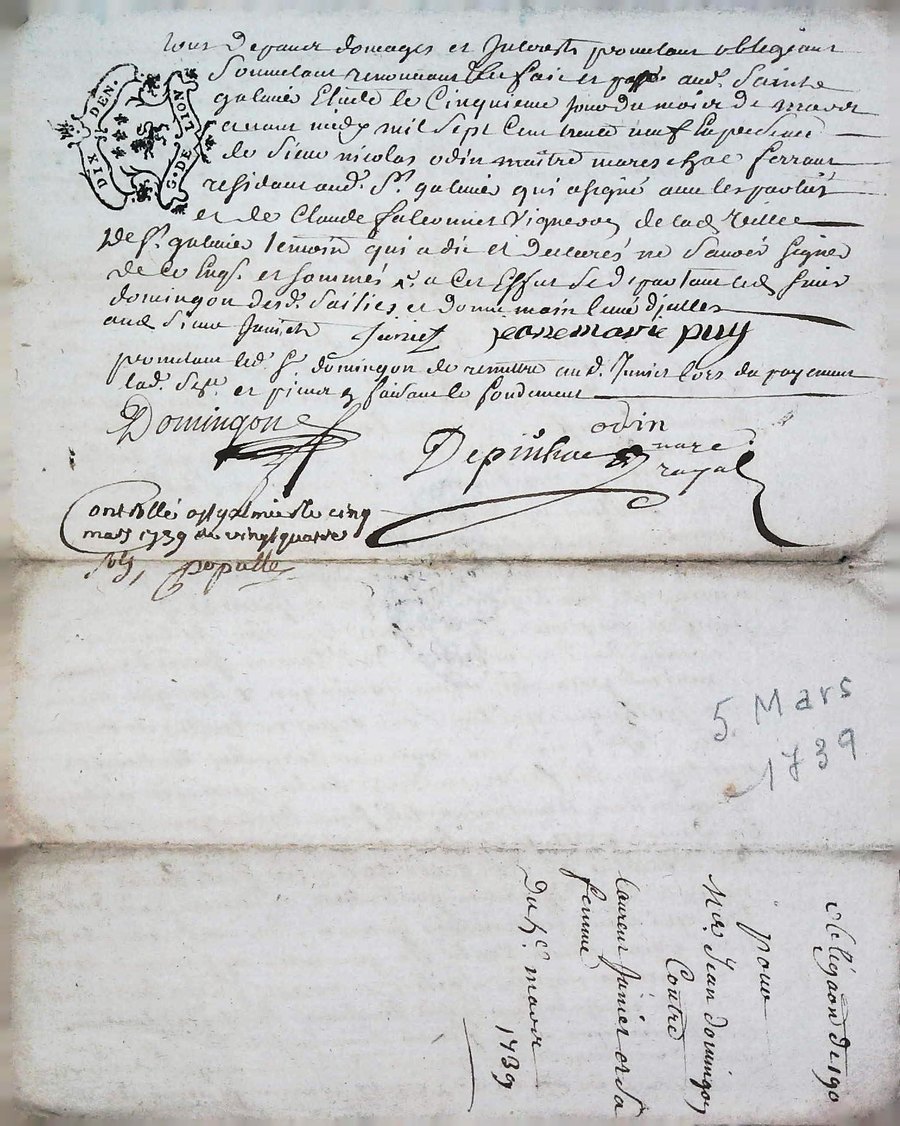 tous depance domages et Interests prometant obligeant
soumetant renonceant &c fait et passé aud. Sainte
galmier Etude le Cinquieme jour du mois de mars
avant midy mil sept Cent trente neuf En presence
de sieur nicolas odin maitre mareschal ferrant
residant aud. St. galmier qui a signé avec les parties
et de Claude falconnier Vigneron de lad. Ville
de St. galmier temoin qui a dit et declaré ne sçavoir signer
de ce Enqs. et sommés
domingon desd. saisies et donne main levée d'icelles
aud sieur Junier Junier jeanne marie puy
prometant led. Sr. domingon de remettre aud. Junier lors du payement
lad. et pieces y faisant le fondement
Domingon
odin
Depinhac nore royal
Controllé a St galmier le cinq
mars 1739 Rx vingt quatre
sols, populle
DIX DEN.
G. DE LION
5 Mars
1739
obligaon de 190
pour
Mre. Jean domingon
Contre
Laurent Junier et sa
femme
Du 5e. mars 1739